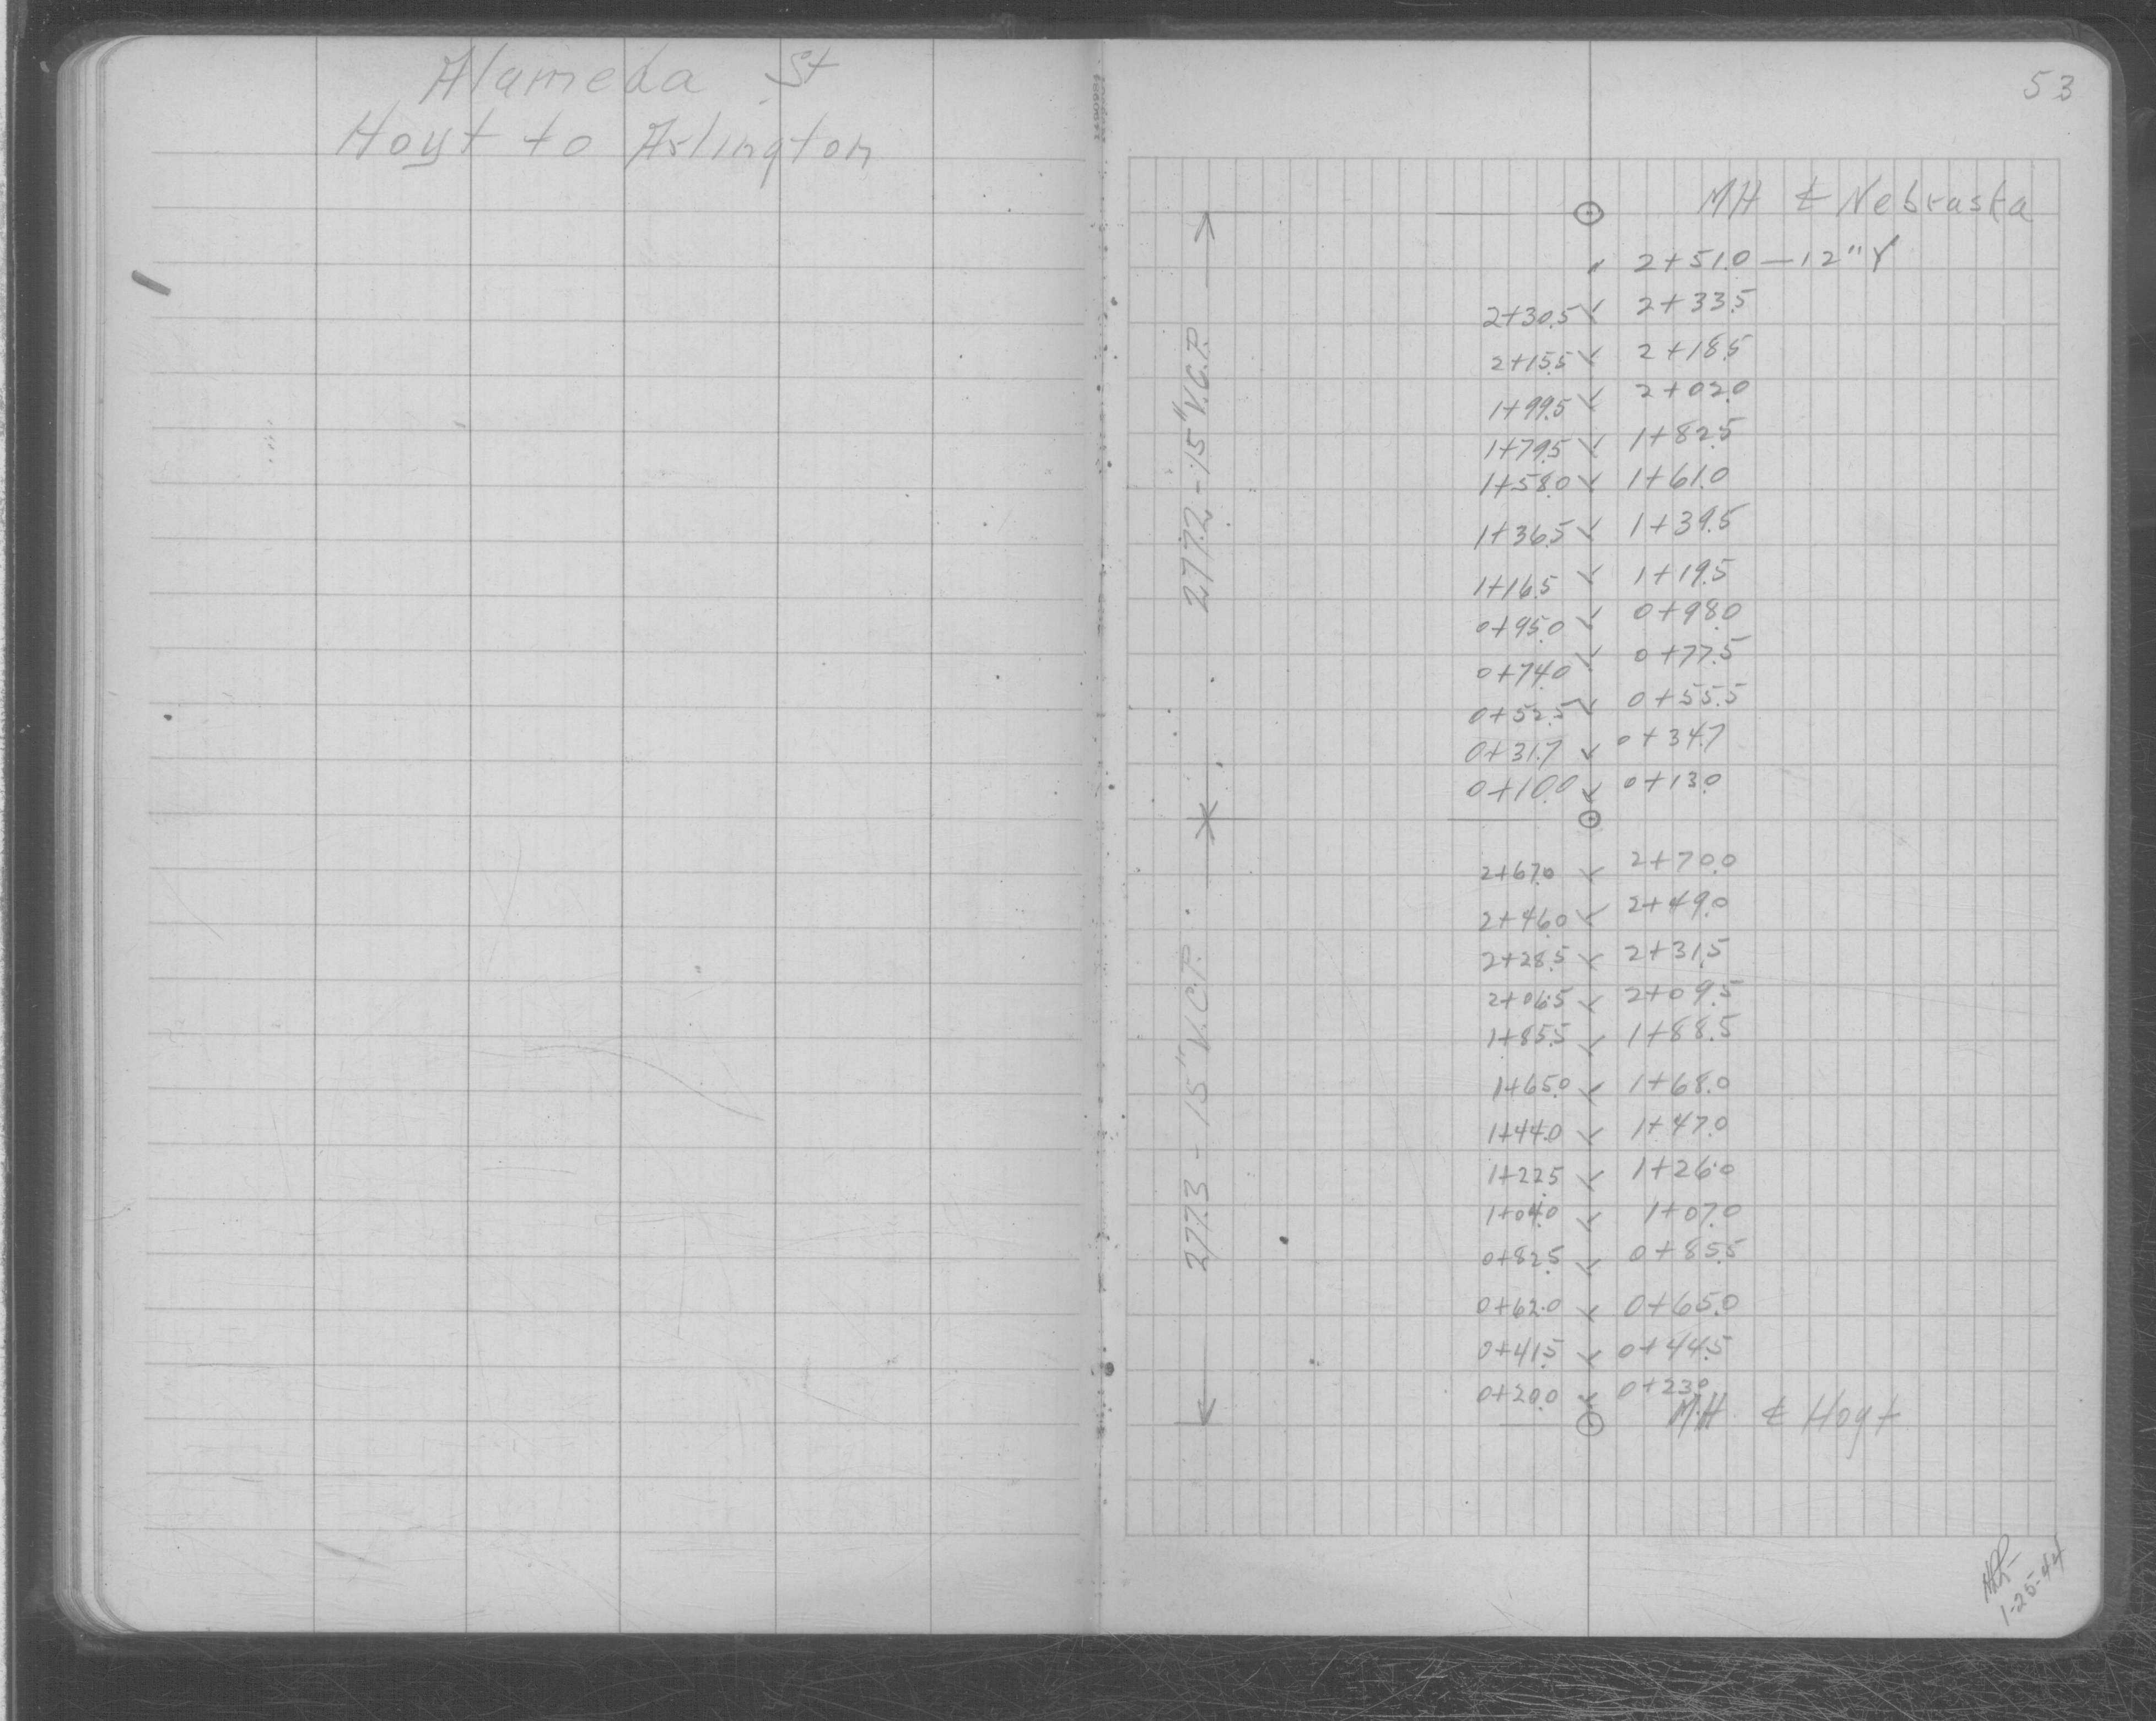 Alameda St
Hoyt to Arlington
53
MH ℄ Nebraska
2+51.0 — 12" Y
2+30.5 2+33.5
2+15.5 2+18.5
1+99.5 2+02.0
1+79.5 1+82.5
1+58.0 1+61.0
1+36.5 1+39.5
1+16.5 1+19.5
0+95.0 0+98.0
0+74.0 0+77.5
0+52.5 0+55.5
0+31.7 0+34.7
0+10.0 0+13.0
277.2 - 15" V.C.P.
2+67.0 2+70.0
2+46.0 2+49.0
2+28.5 2+31.5
2+06.5 2+09.5
1+85.5 1+88.5
1+65.0 1+68.0
1+44.0 1+47.0
1+22.5 1+26.0
1+04.0 1+07.0
0+82.5 0+85.5
0+62.0 0+65.0
0+41.5 0+44.5
0+20.0 0+23.0
MH ℄ Hoyt
277.3 - 15" V.C.P.
1-25-44